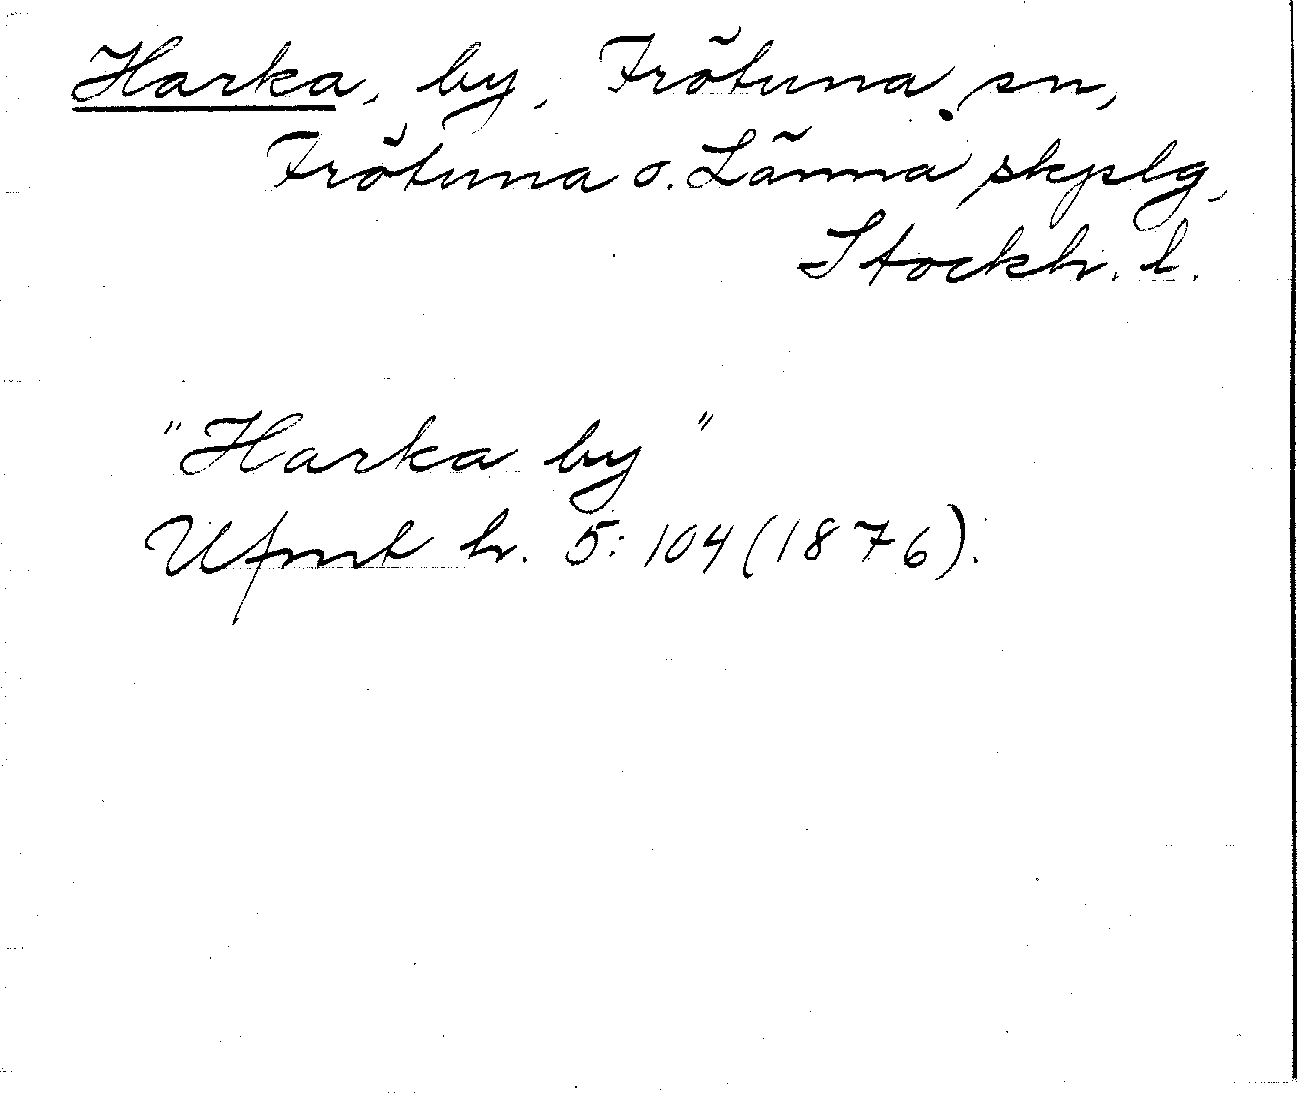 Harka, by, Frötuna sn,
Frötuna o. Länna skplg,
Stockh. l.
"Harka by"
Ufmt h. 5:104 (1876).